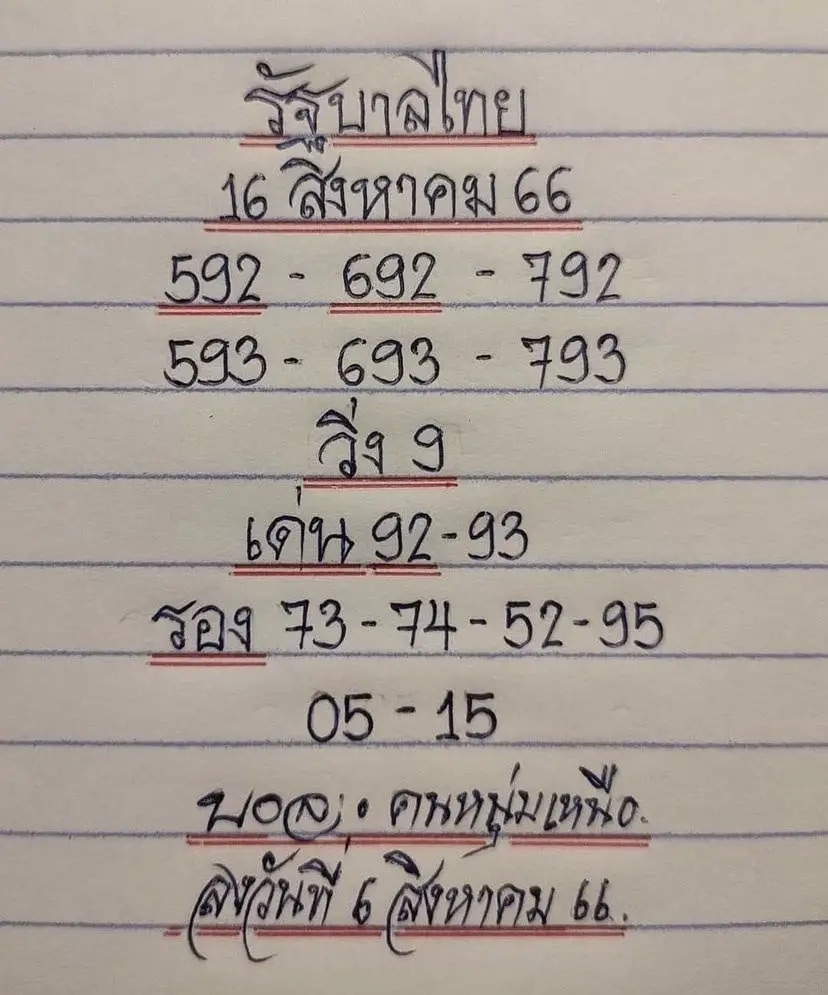 รัฐบาลไทย
16 สิงหาคม 66
592 - 692 - 792
593 - 693 - 793
วิ่ง 9
เด่น 92-93
รอง 73-74-52-95
05-15
บอล. คนหนุ่มเหนือ.
ลงวันที่ 6 สิงหาคม 66.